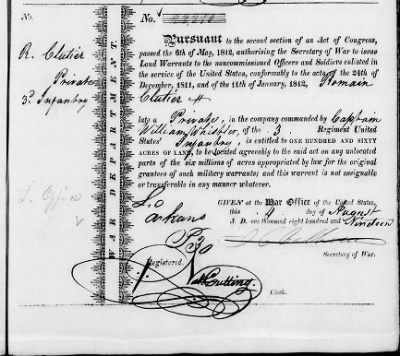 No.
No. 22210
R. Clutier
Private
3d Infantry
WAR DEPARTMENT.
Pursuant to the second section of an Act of Congress,
passed the 6th of May, 1812, authorising the Secretary of War to issue
Land Warrants to the noncommissioned Officers and Soldiers enlisted in
the service of the United States, conformably to the acts of the 24th of
December, 1811, and of the 11th of January, 1812, Romain
Clutier
late a Private, in the company commanded by Captain
William Whistler, of the 3. Regiment United
States' Infantry, is entitled to ONE HUNDRED AND SIXTY
ACRES OF LAND, to be located agreeably to the said act on any unlocated
parts of the six millions of acres appropriated by law for the original
grantees of such military warrants; and this warrant is not assignable
or transferable in any manner whatever.
L. Office
L. O
Arkans
GIVEN at the War Office of the United States,
this 4 day of August
A. D. one thousand eight hundred and Nineteen
Secretary of War.
Registered.
Nat. Cutting.
Clerk.